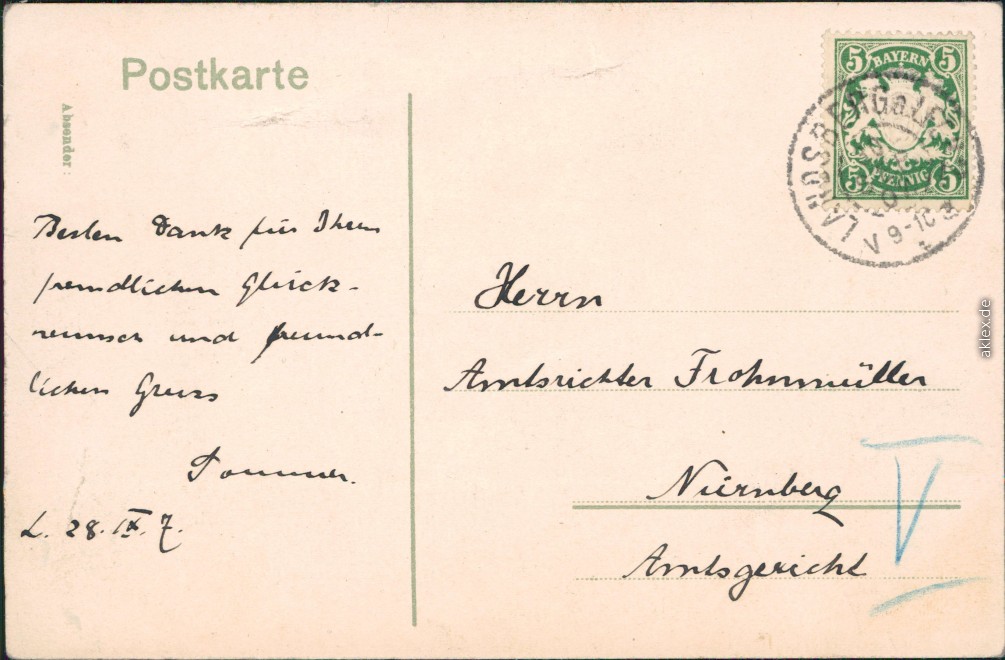 Postkarte
Absender:
Besten Dank für Ihren
freundlichen Glück-
wunsch und freund-
lichen Gruss
L. 28. IX. 7.
5 BAYERN 5
5 PFENNIG 5
LANDSBERG a. L.
V 9-10
Herrn
Amtsrichter Frohnmüller
Nürnberg
Amtsgericht
V
aklex.de